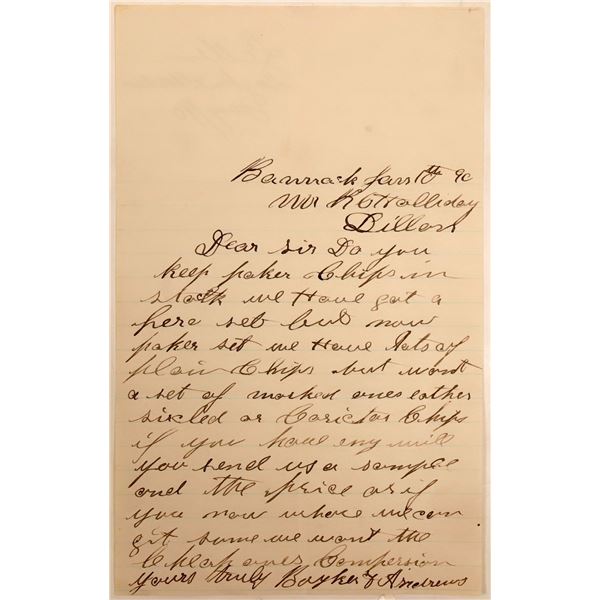 Bannack Jan 10th 90
Mr R C Halliday
Dillon
Dear Sir Do you
keep poker Chips in
stock we Have got a
fero set but now
poker set we Have lots of
plain Chips but want
a set of marked ones eather
sircled or Carictor Chips
if you have eny will
you send us a sample
and the price or if
you now where we can
get some we want the
Cheap ones Compersion
yours truly & Andrews